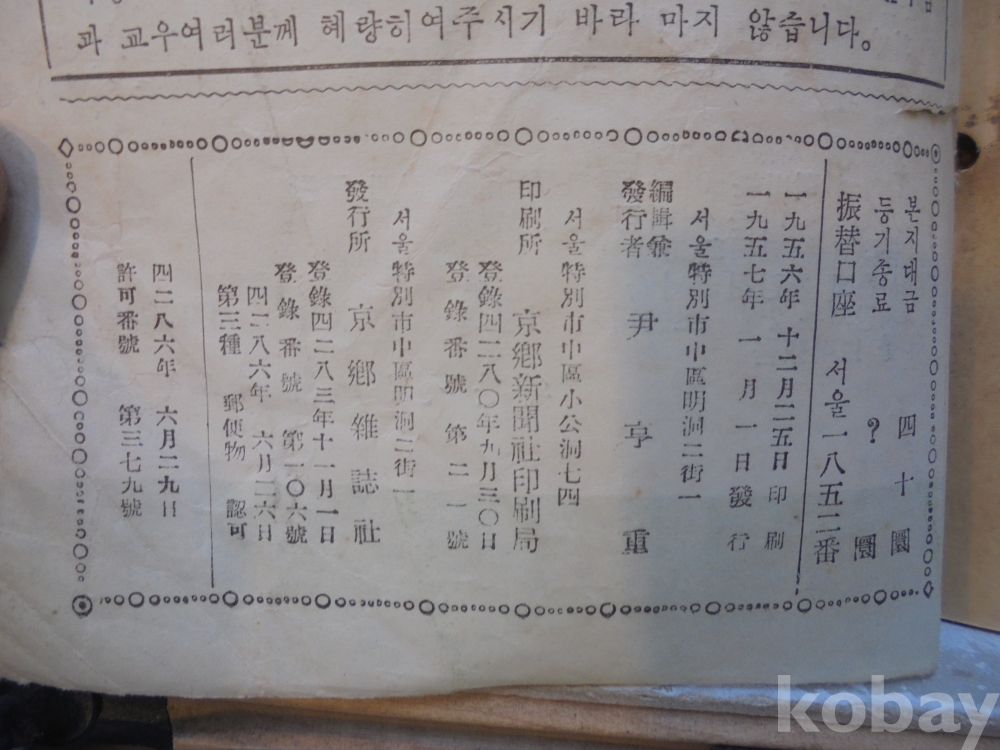 과 교우여러분께 혜량히여주시기 바라 마지 않습니다。
본지대금 四十圜
등기종료 ? 圜
振替口座 서울一八五二番
一九五六年 十二月二五日 印刷
一九五七年 一月一日 發行
서울特別市中區明洞二街一
編輯兼
發行者 尹亨重
서울特別市中區小公洞七四
印刷所 京鄕新聞社印刷局
登錄四二八〇年九月三〇日
登錄番號 第二一號
서울特別市中區明洞二街一
發行所 京鄕雜誌社
登錄四二八三年十一月一日
登錄番號 第一〇六號
四二八六年 六月二六日
第三種 郵便物 認可
四二八六年 六月二九日
許可番號 第三七九號
kobay